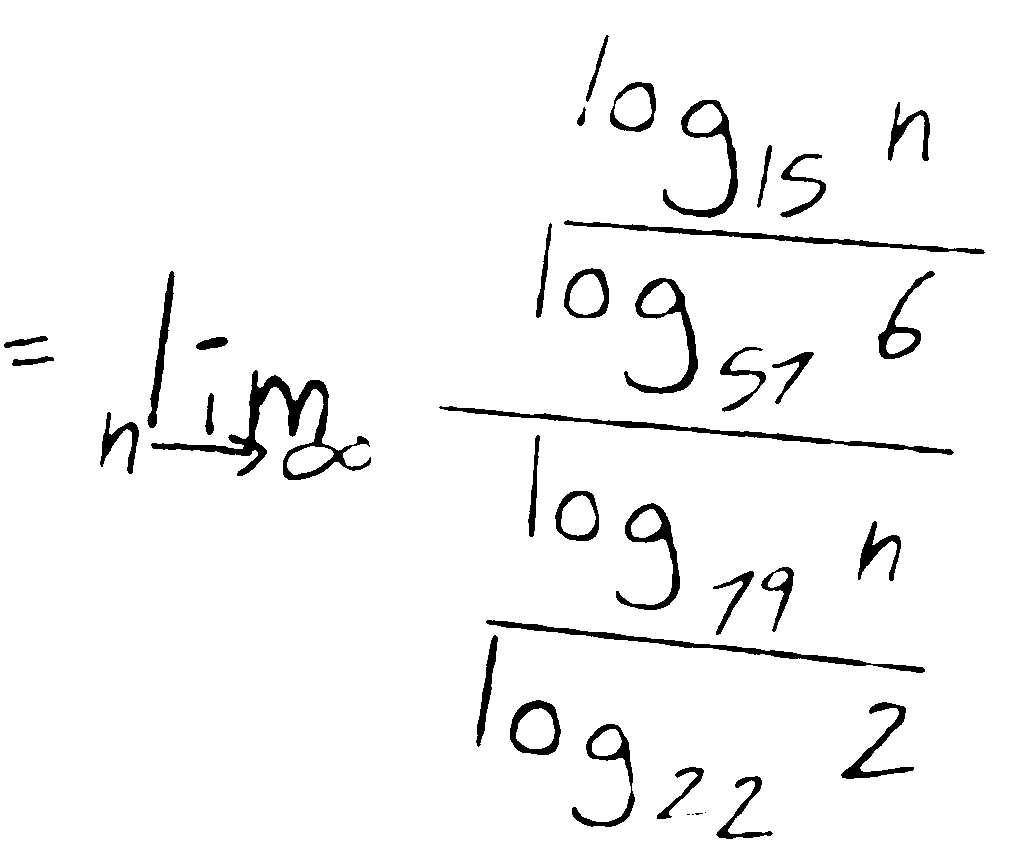 = \lim_{n \to \infty} \frac{\frac{\log_{15} n}{\log_{57} 6}}{\frac{\log_{79} n}{\log_{22} 2}}